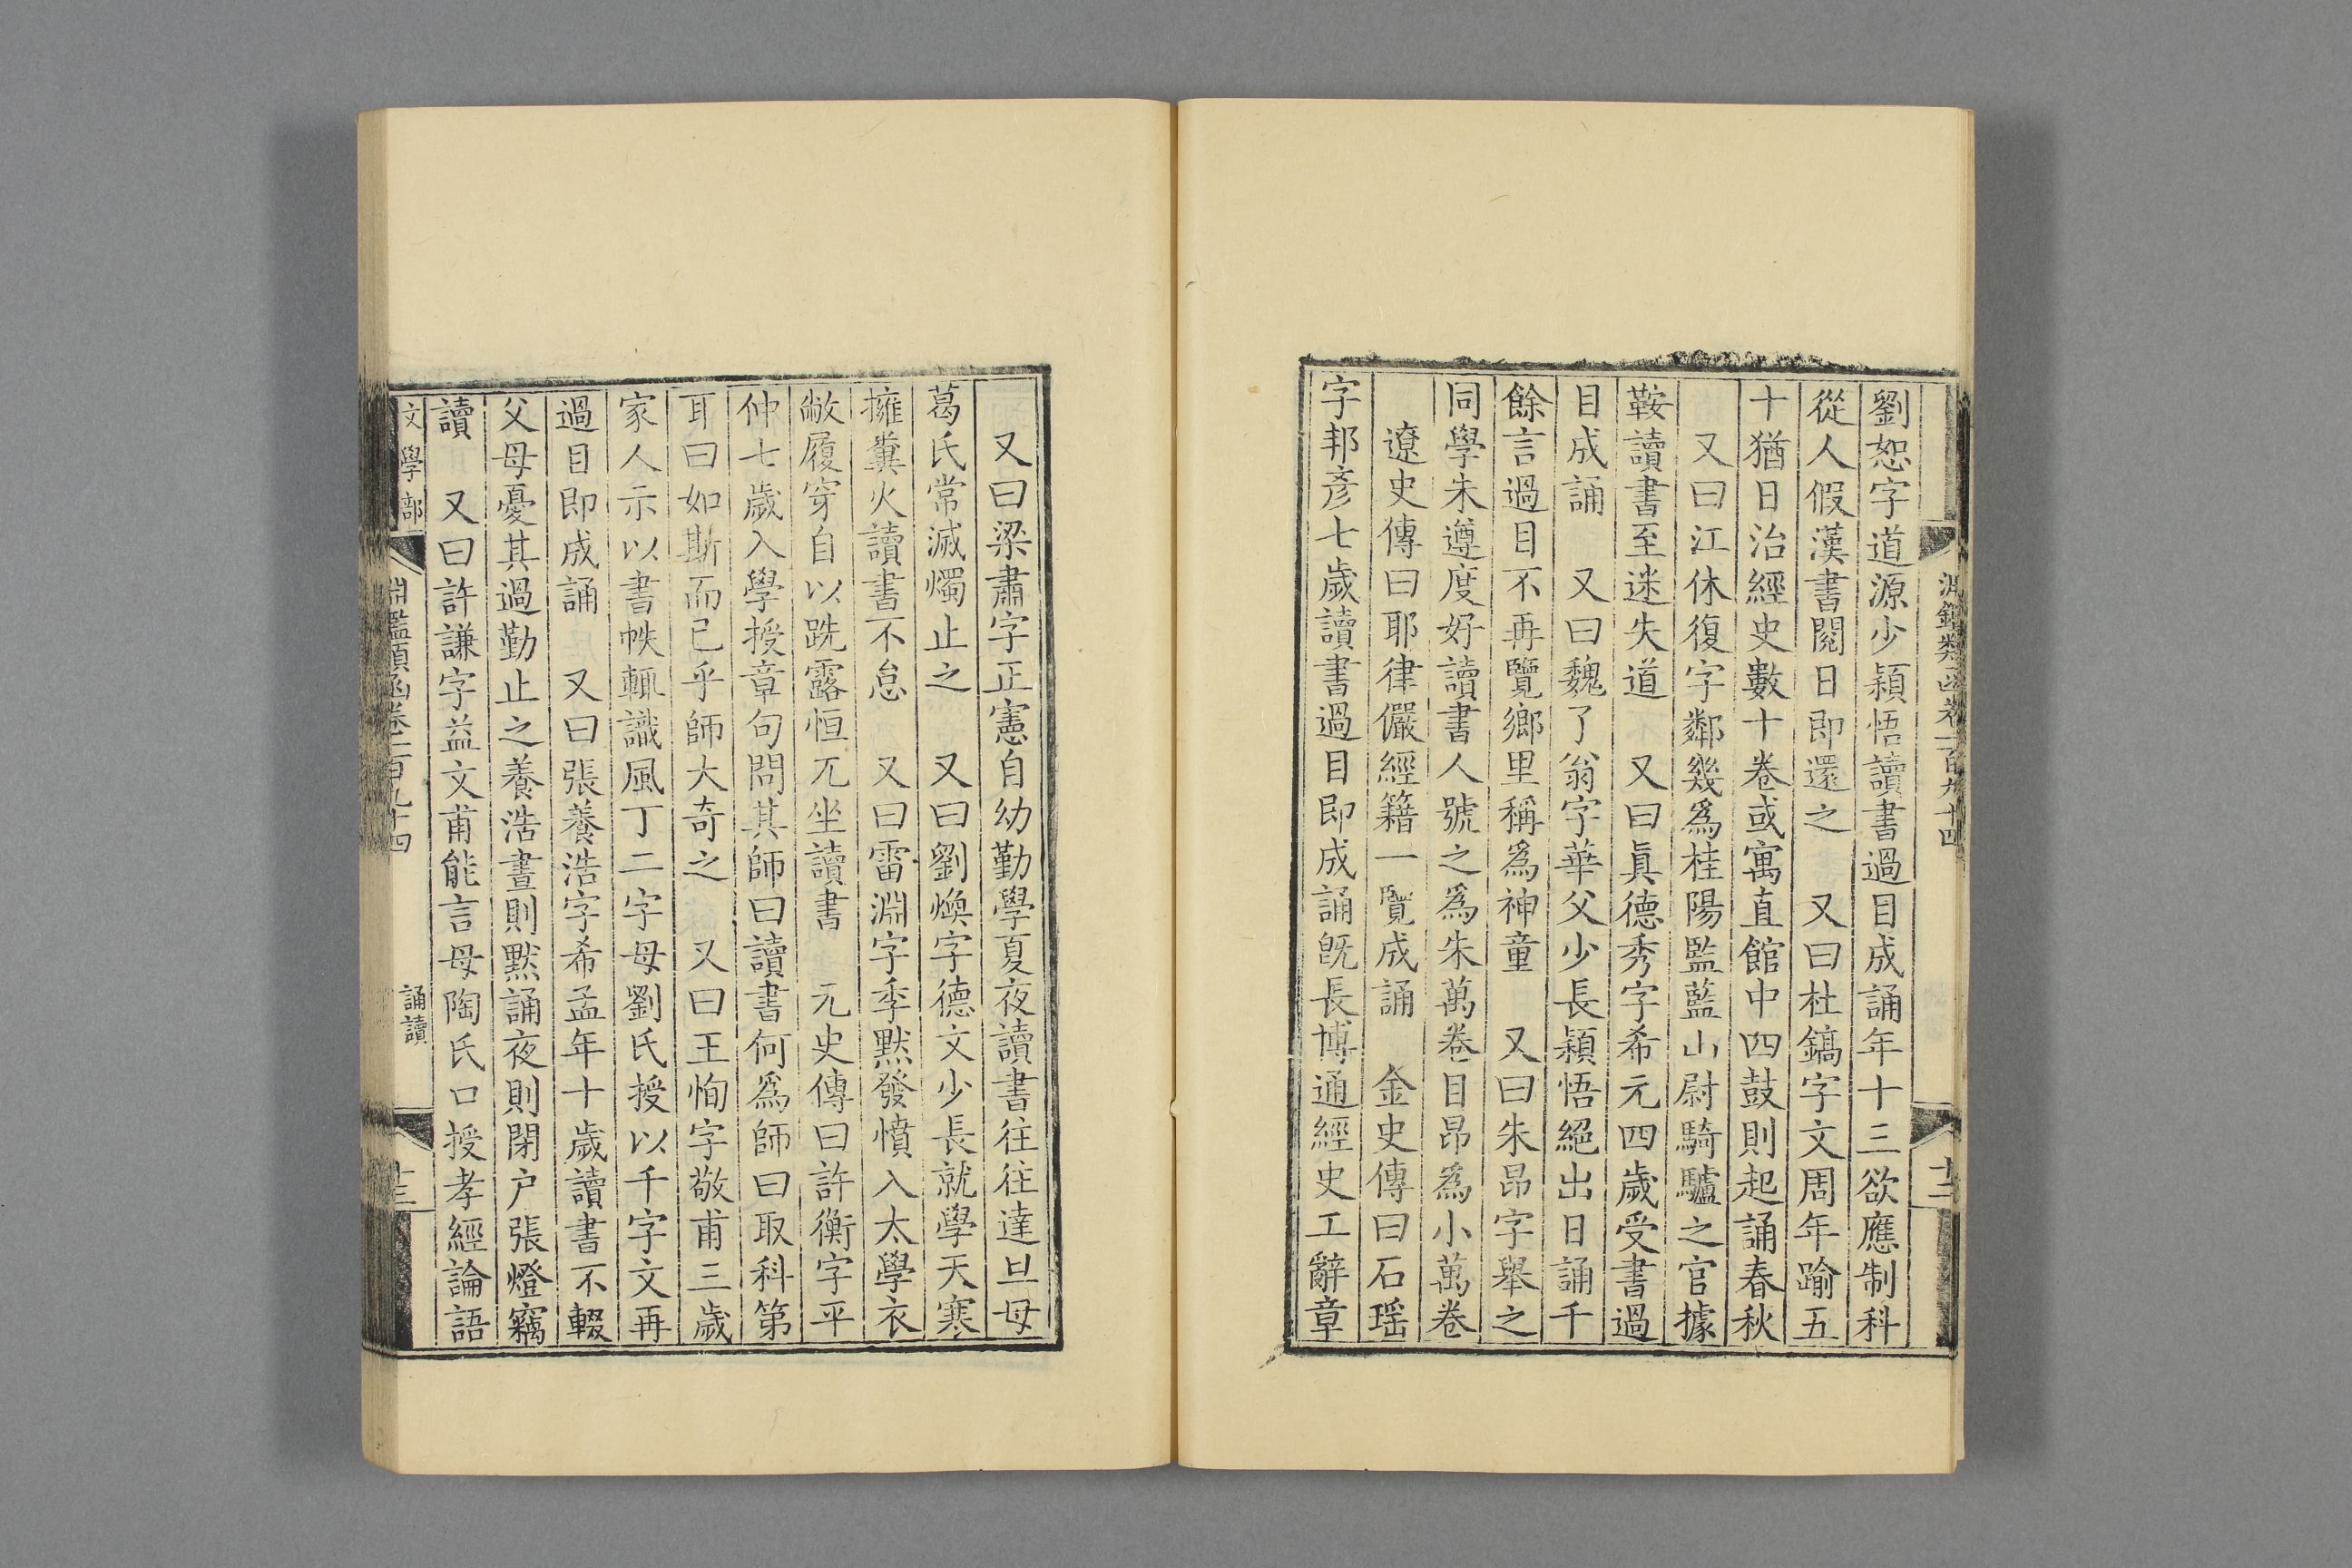 淵鑑類函卷一百九十四
十二
劉恕字道源少穎悟讀書過目成誦年十三欲應制科
從人假漢書閱日即還之　又曰杜鎬字文周年踰五
十猶日治經史數十卷或寓直館中四鼓則起誦春秋
又曰江休復字鄰幾爲桂陽監藍山尉騎驢之官據
鞍讀書至迷失道　又曰眞德秀字希元四歲受書過
目成誦　又曰魏了翁字華父少長穎悟絕出日誦千
餘言過目不再覽鄉里稱爲神童　又曰朱昂字舉之
同學朱遵度好讀書人號之爲朱萬卷目昂爲小萬卷
遼史傳曰耶律儼經籍一覽成誦　金史傳曰石瑶
字邦彥七歲讀書過目即成誦旣長博通經史工辭章
又曰梁肅字正憲自幼勤學夏夜讀書往往達旦母
葛氏常滅燭止之　又曰劉煥字德文少長就學天寒
擁糞火讀書不怠　又曰雷淵字季默發憤入太學衣
敝履穿自以跣露恒兀坐讀書　元史傳曰許衡字平
仲七歲入學授章句問其師曰讀書何爲師曰取科第
耳曰如斯而已乎師大奇之　又曰王恂字敬甫三歲
家人示以書帙輒識風丁二字母劉氏授以千字文再
過目即成誦　又曰張養浩字希孟年十歲讀書不輟
父母憂其過勤止之養浩晝則默誦夜則閉户張燈竊
讀　又曰許謙字益文甫能言母陶氏口授孝經論語
文學部
淵鑑類函卷一百九十四
誦讀
十三